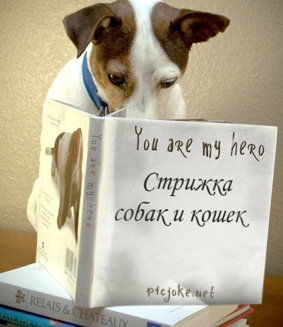 You are my hero
Стрижка
собак и кошек
picjoke.net
You are my hero
RELAIS & CHATEAUX